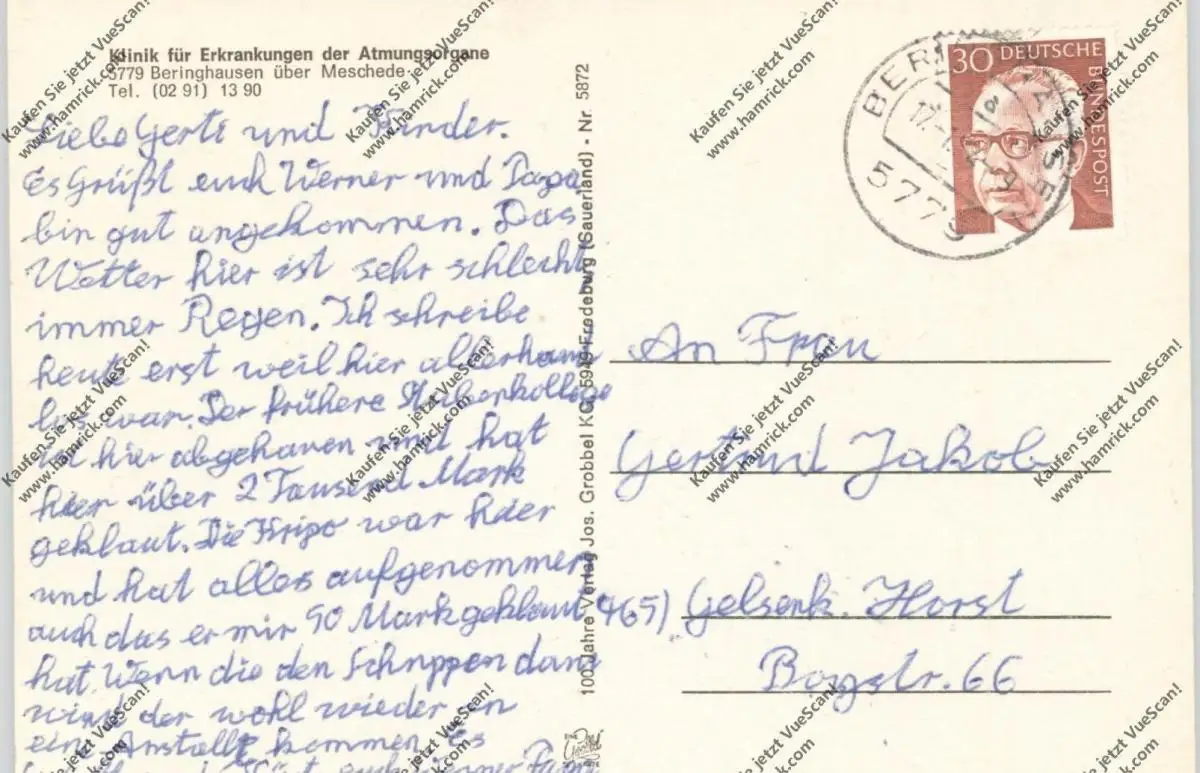 Klinik für Erkrankungen der Atmungsorgane
5779 Beringhausen über Meschede
Tel. (02 91) 13 90
Liebe Gerti und Kinder.
Es Grüßt euch Werner und Papa,
bin gut angekommen. Das
Wetter hier ist sehr schlecht
immer Regen. Ich schreibe
heute erst weil hier allerhand
los war. Der frühere
ist hier abgehauen und hat
hier über 2 Tausend Mark
geklaut. Die Kripo war hier
und hat alles aufgenommen
auch das er mir 50 Mark geklaut
hat. Wenn die den Schnappen dann
wird der wohl wieder in
eine Anstallt kommen. Es
euch Werner Papa
100 Jahre Verlag Jos. Grobbel KG, 5949 Fredeburg (Sauerland) - Nr. 5872
30 DEUTSCHE
BUNDESPOST
5779
An Frau
Gertrud Jakob
465) Gelsenk. Horst
Boystr. 66
Kaufen Sie jetzt VueScan!
www.hamrick.com